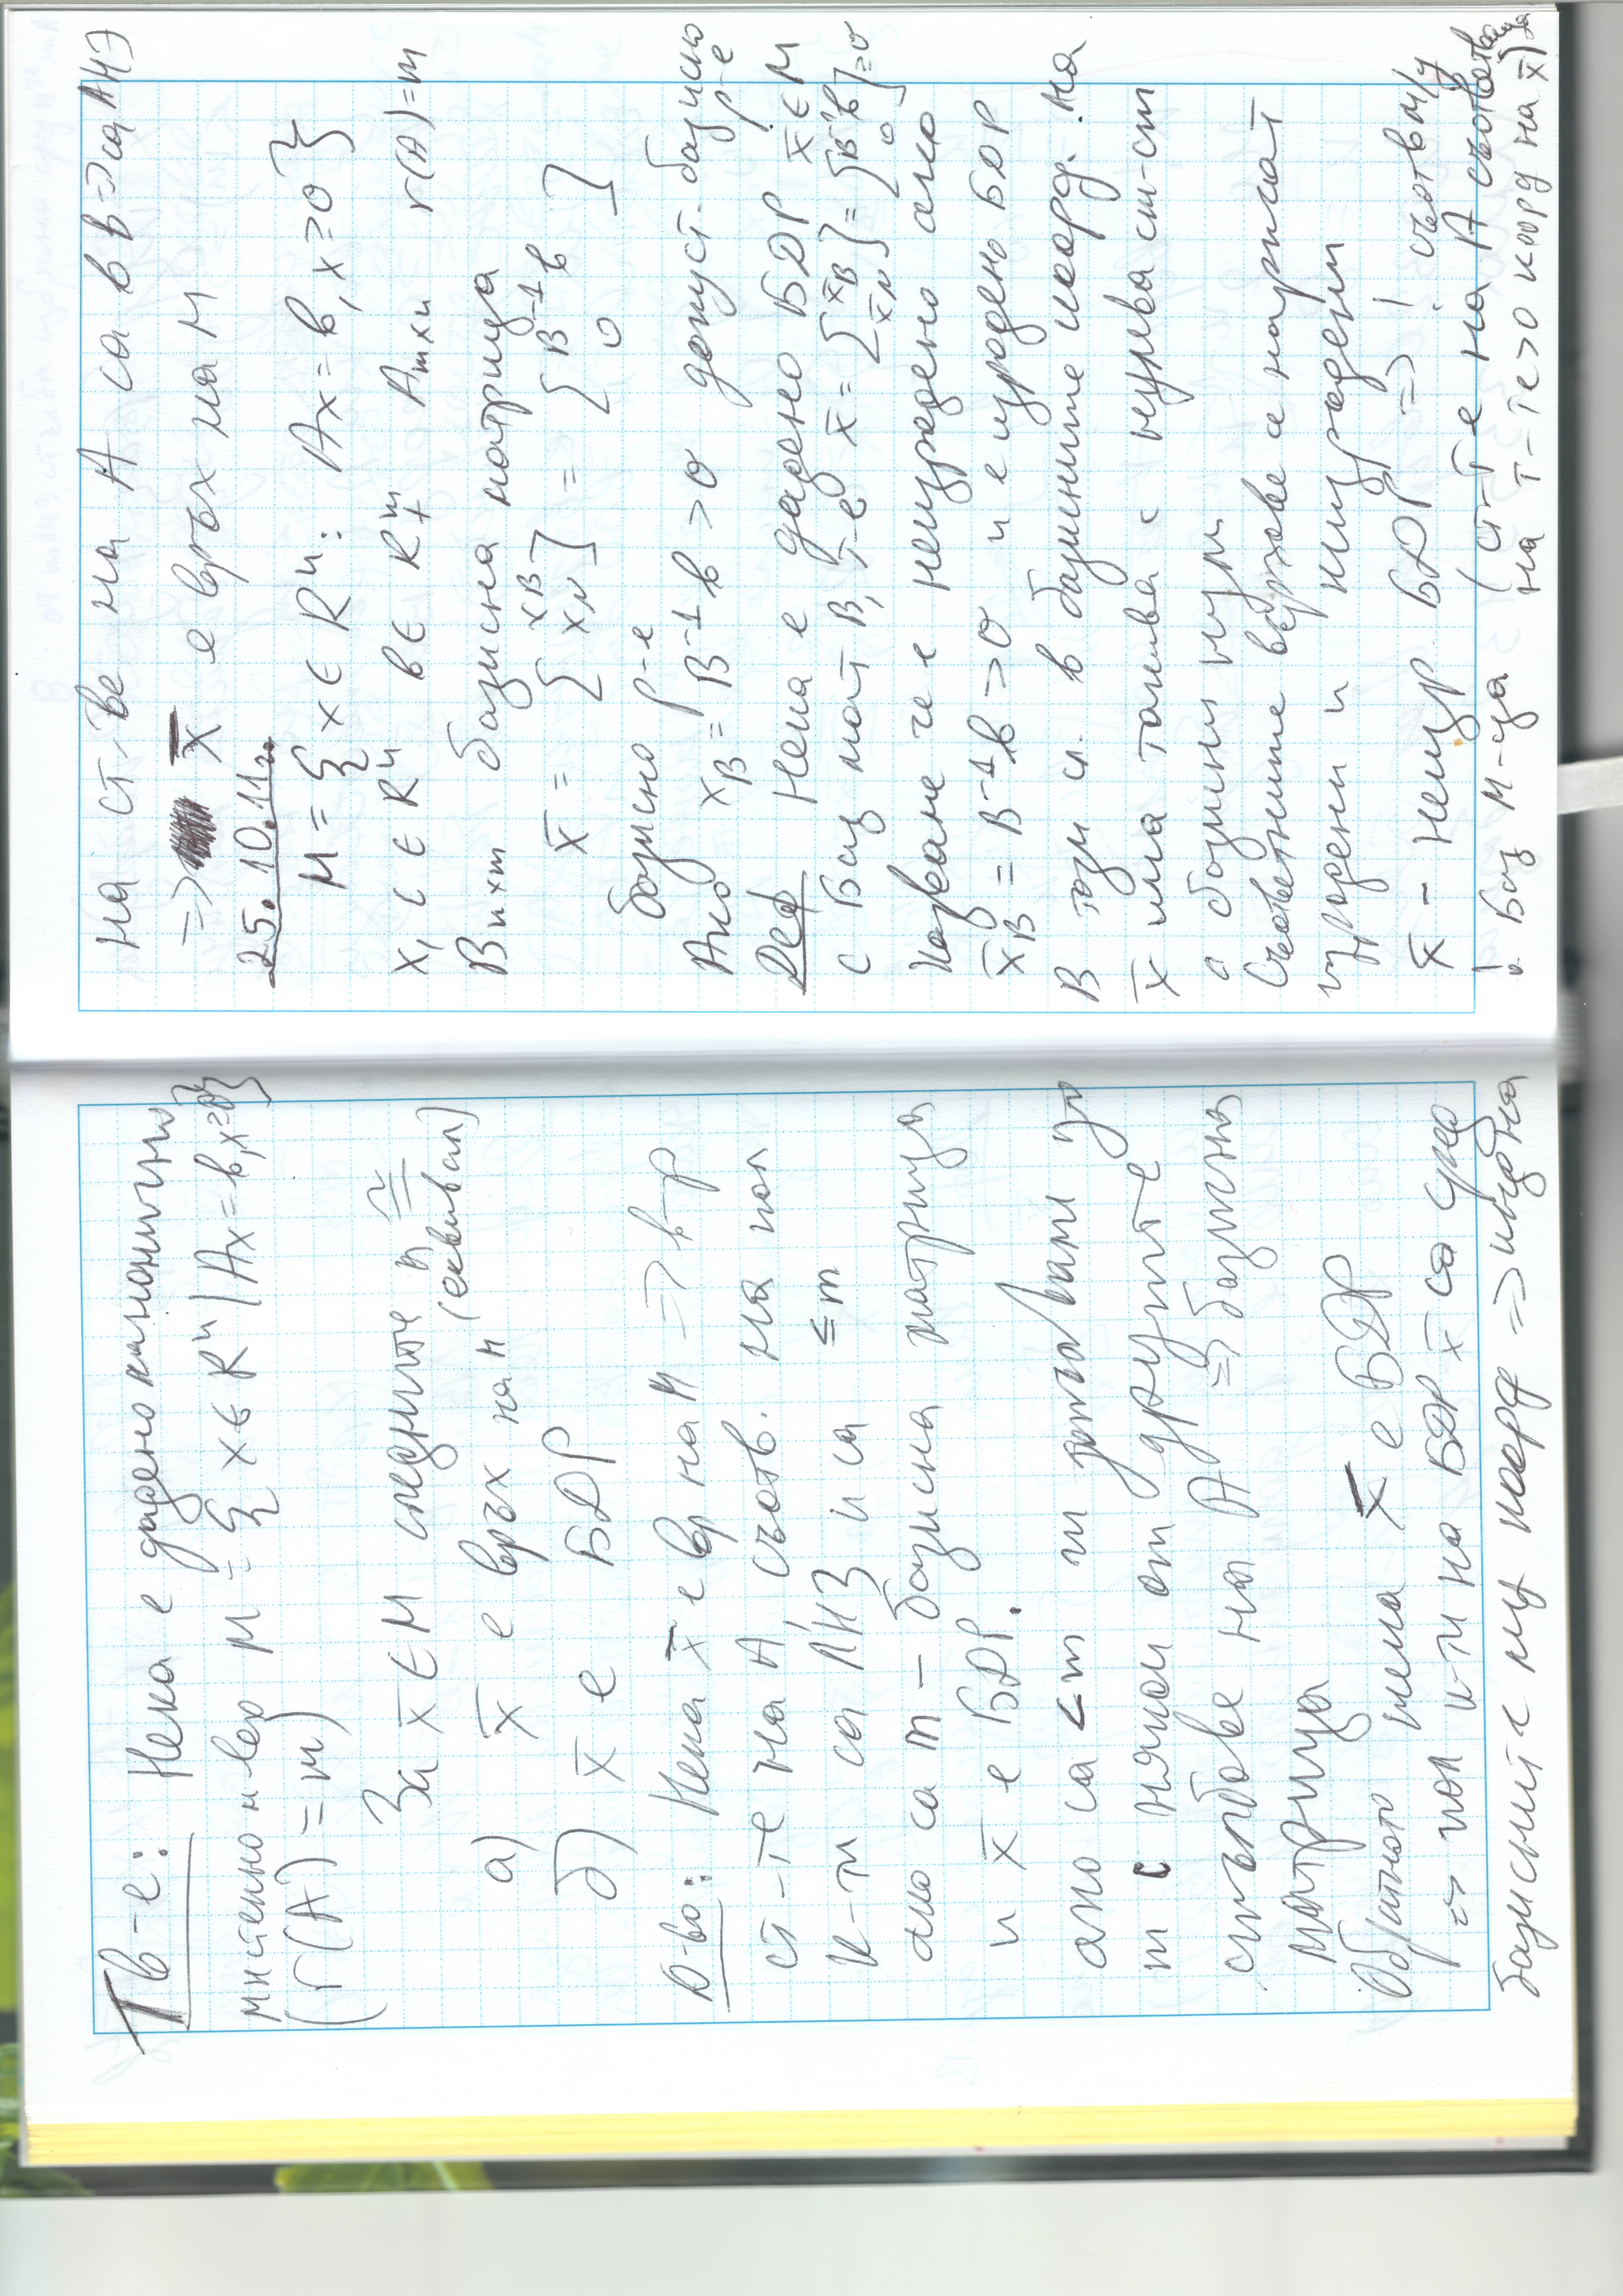 Тв-е: Нека е дадено канонично
мнтено и вер M = { x ∈ Rⁿ | Ax = b, x ≥ 0 }
(r(A) = m)
За x̄ ∈ M следните п ≅
а) x̄ е връх на M (еквивал)
б) x̄ е БДР
Д-во: Нека x̄ е вр на M => вър
ст-те на A съотв. на пол
к-ти са ЛНЗ и са ≤ m
ако са m – базисна матрица
и x̄ е БДР.
ако са < m ги допълваме до
m с някои от другите
стълбове на A => базисна
матрица
Обратно нека x̄ е БДР
=> пол к-ти на БДР x̄ са сред
базисните му коорд =>
на ст.-ве на A са в В-ЗаЛНЗ
=> x̄ е връх на M
25.10.11г.
M = { x ∈ Rⁿ : Ax = b, x ≥ 0 }
x, c ∈ Rⁿ b ∈ R₊ᵐ Aₘₓₙ r(A) = m
Bₙₓₘ базисна матрица
x̄ = [ x_B x_N ] = [ B⁻¹b 0 ]
базисно р-е
Ако x_B = B⁻¹b > 0 допуст. базисно р-е
Деф Нека е дадено БДР x̄ ∈ M
с баз мат B, т-е x̄ = [ x̄_B x̄_N ] = [ B⁻¹b 0 ] ≥ 0
Казваме че е неизродено ако
x̄_B = B⁻¹b > 0 и е изродено БДР
В този сл. в базисните коорд. на
x̄ има такива с нулева ст-ст
о базисни нули
Съответните върхове се наричат
изродени и неизродени
x̄ – неизр. БДР => ! съотв м/у
! баз м-ца (ст-те на A съответстващи
на т-те > 0 коорд на x̄)